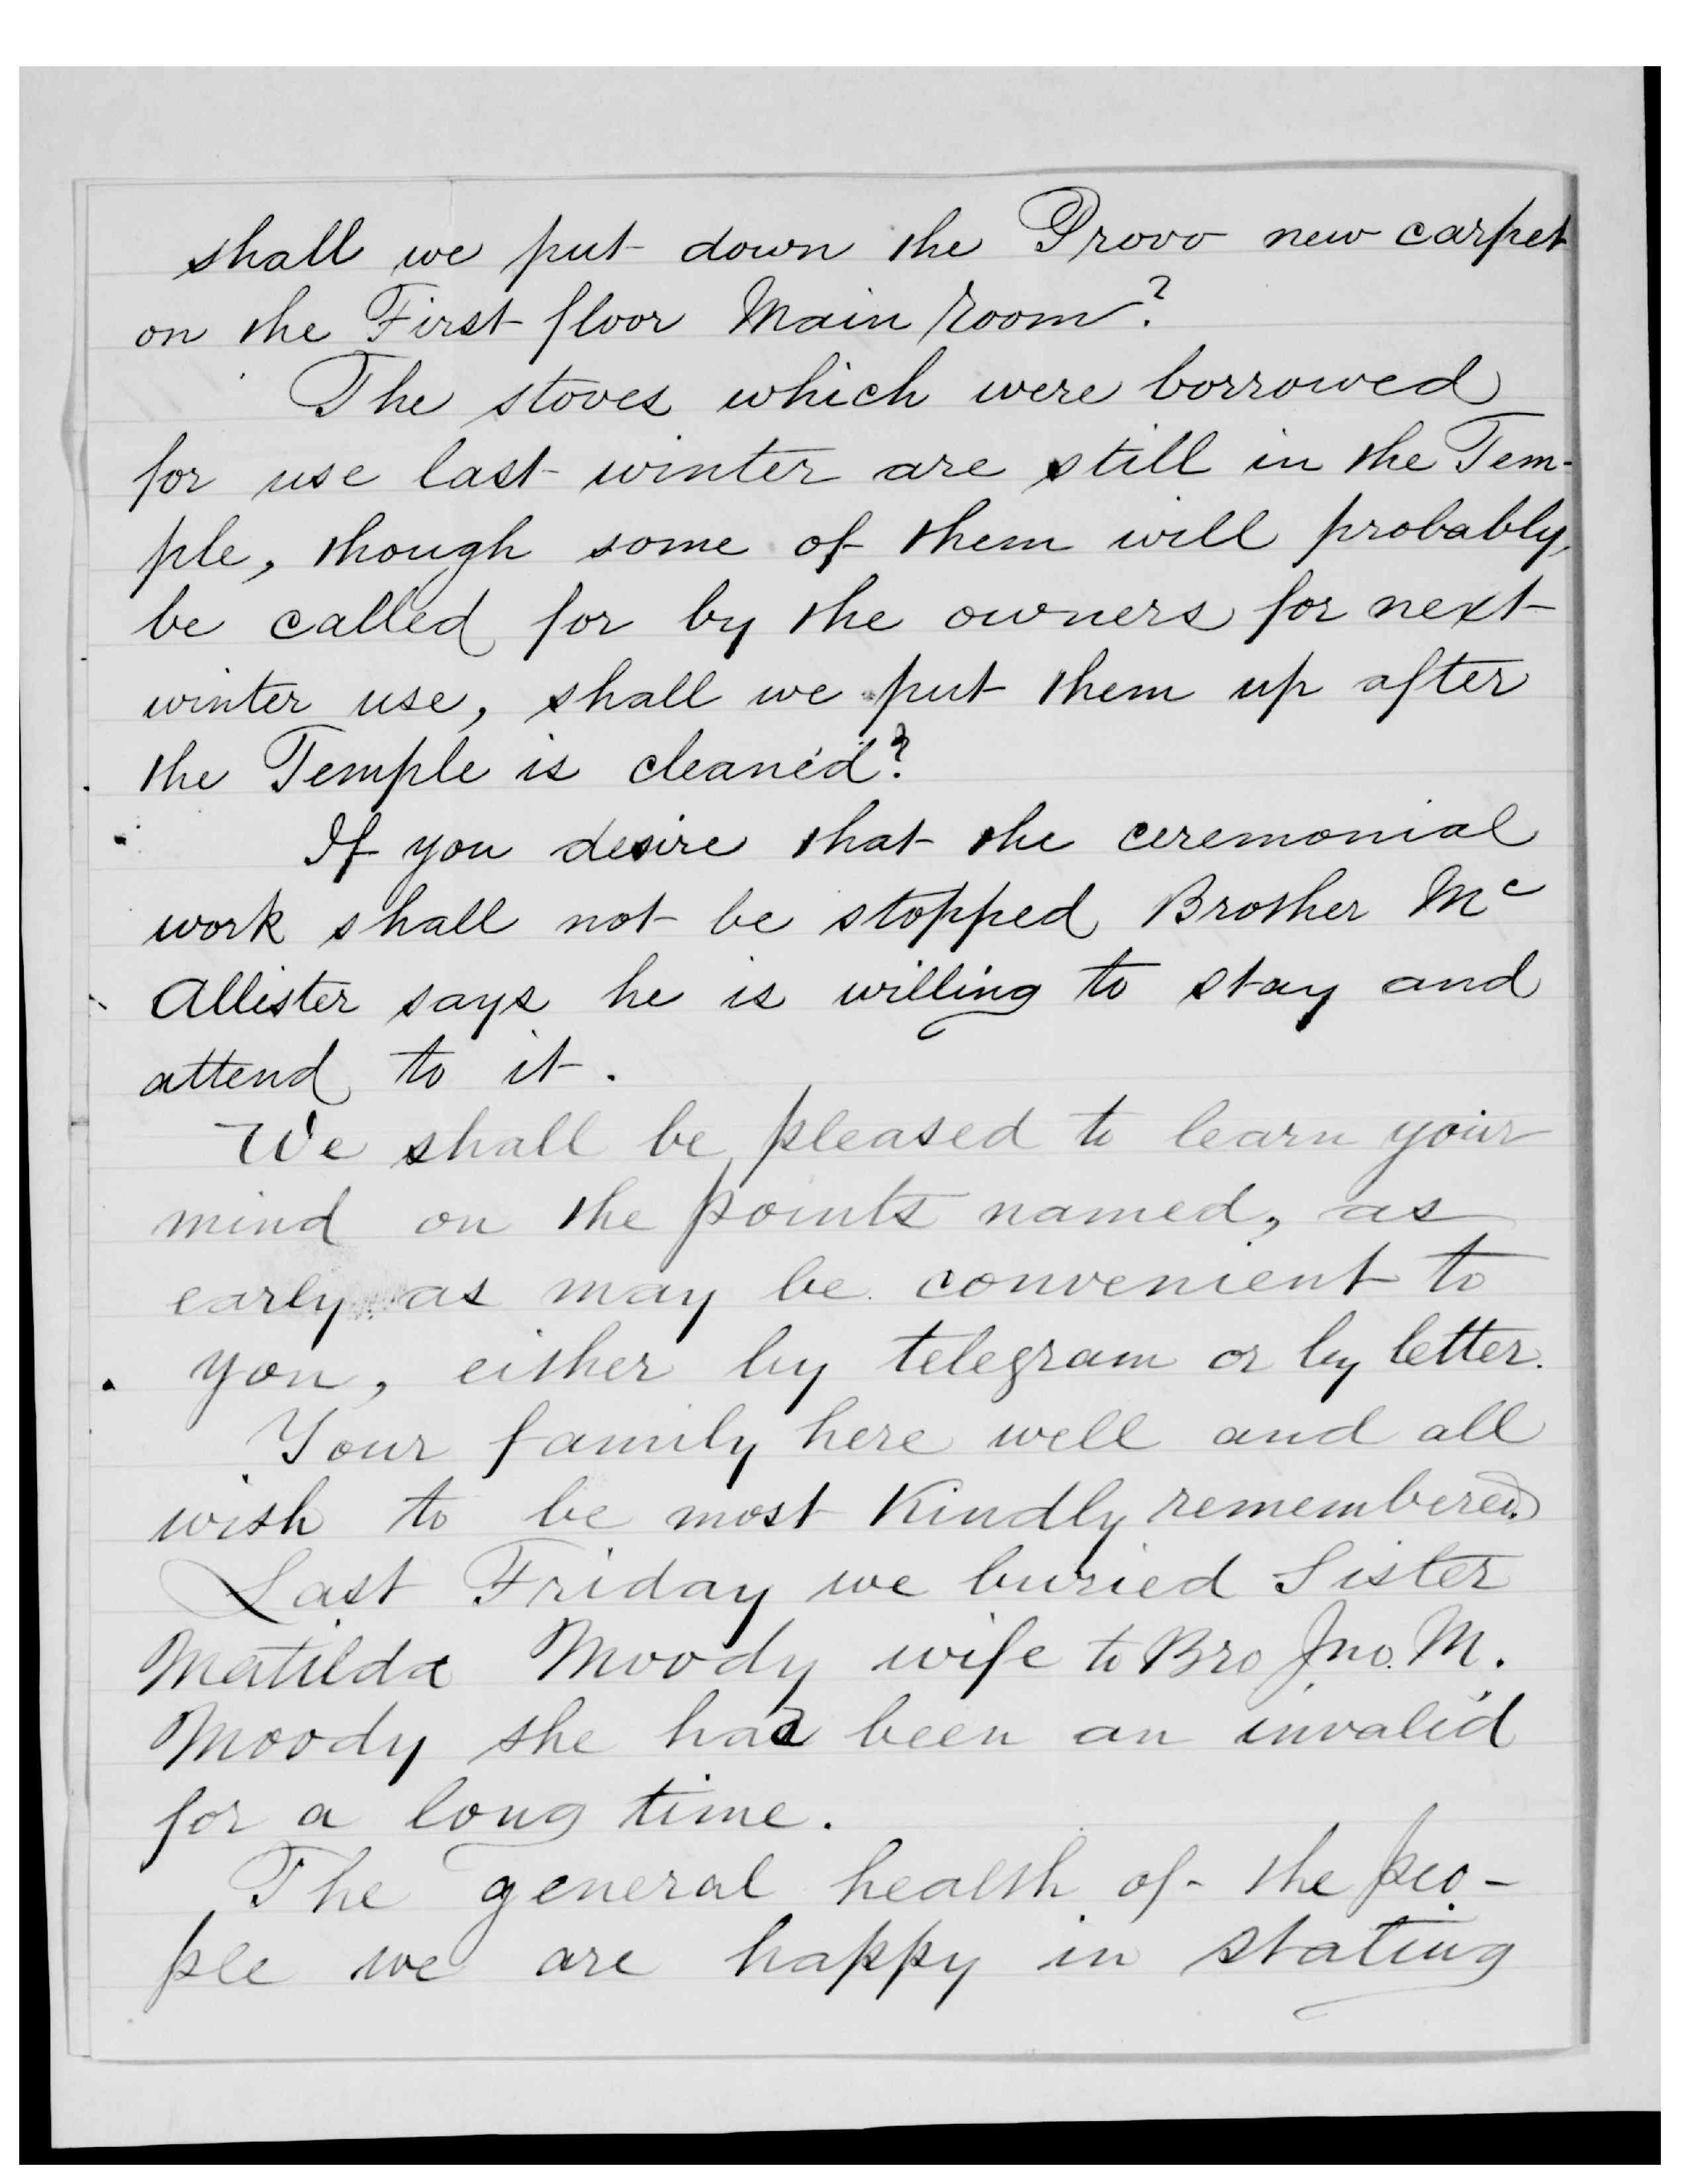 shall we put down the Provo new carpet
on the First floor Main room?
The stoves which were borrowed
for use last winter are still in the Tem-
ple, though some of them will probably
be called for by the owners for next
winter use, shall we put them up after
the Temple is cleaned?
If you desire that the ceremonial
work shall not be stopped Brother Mc
Allister says he is willing to stay and
attend to it.
We shall be pleased to learn your
mind on the points named, as
early as may be convenient to
you, either by telegram or by letter.
Your family here well and all
wish to be most kindly remembered.
Last Friday we buried Sister
Matilda Moody wife to Bro Jno. M.
Moody she had been an invalid
for a long time.
The general health of the peo-
ple we are happy in stating